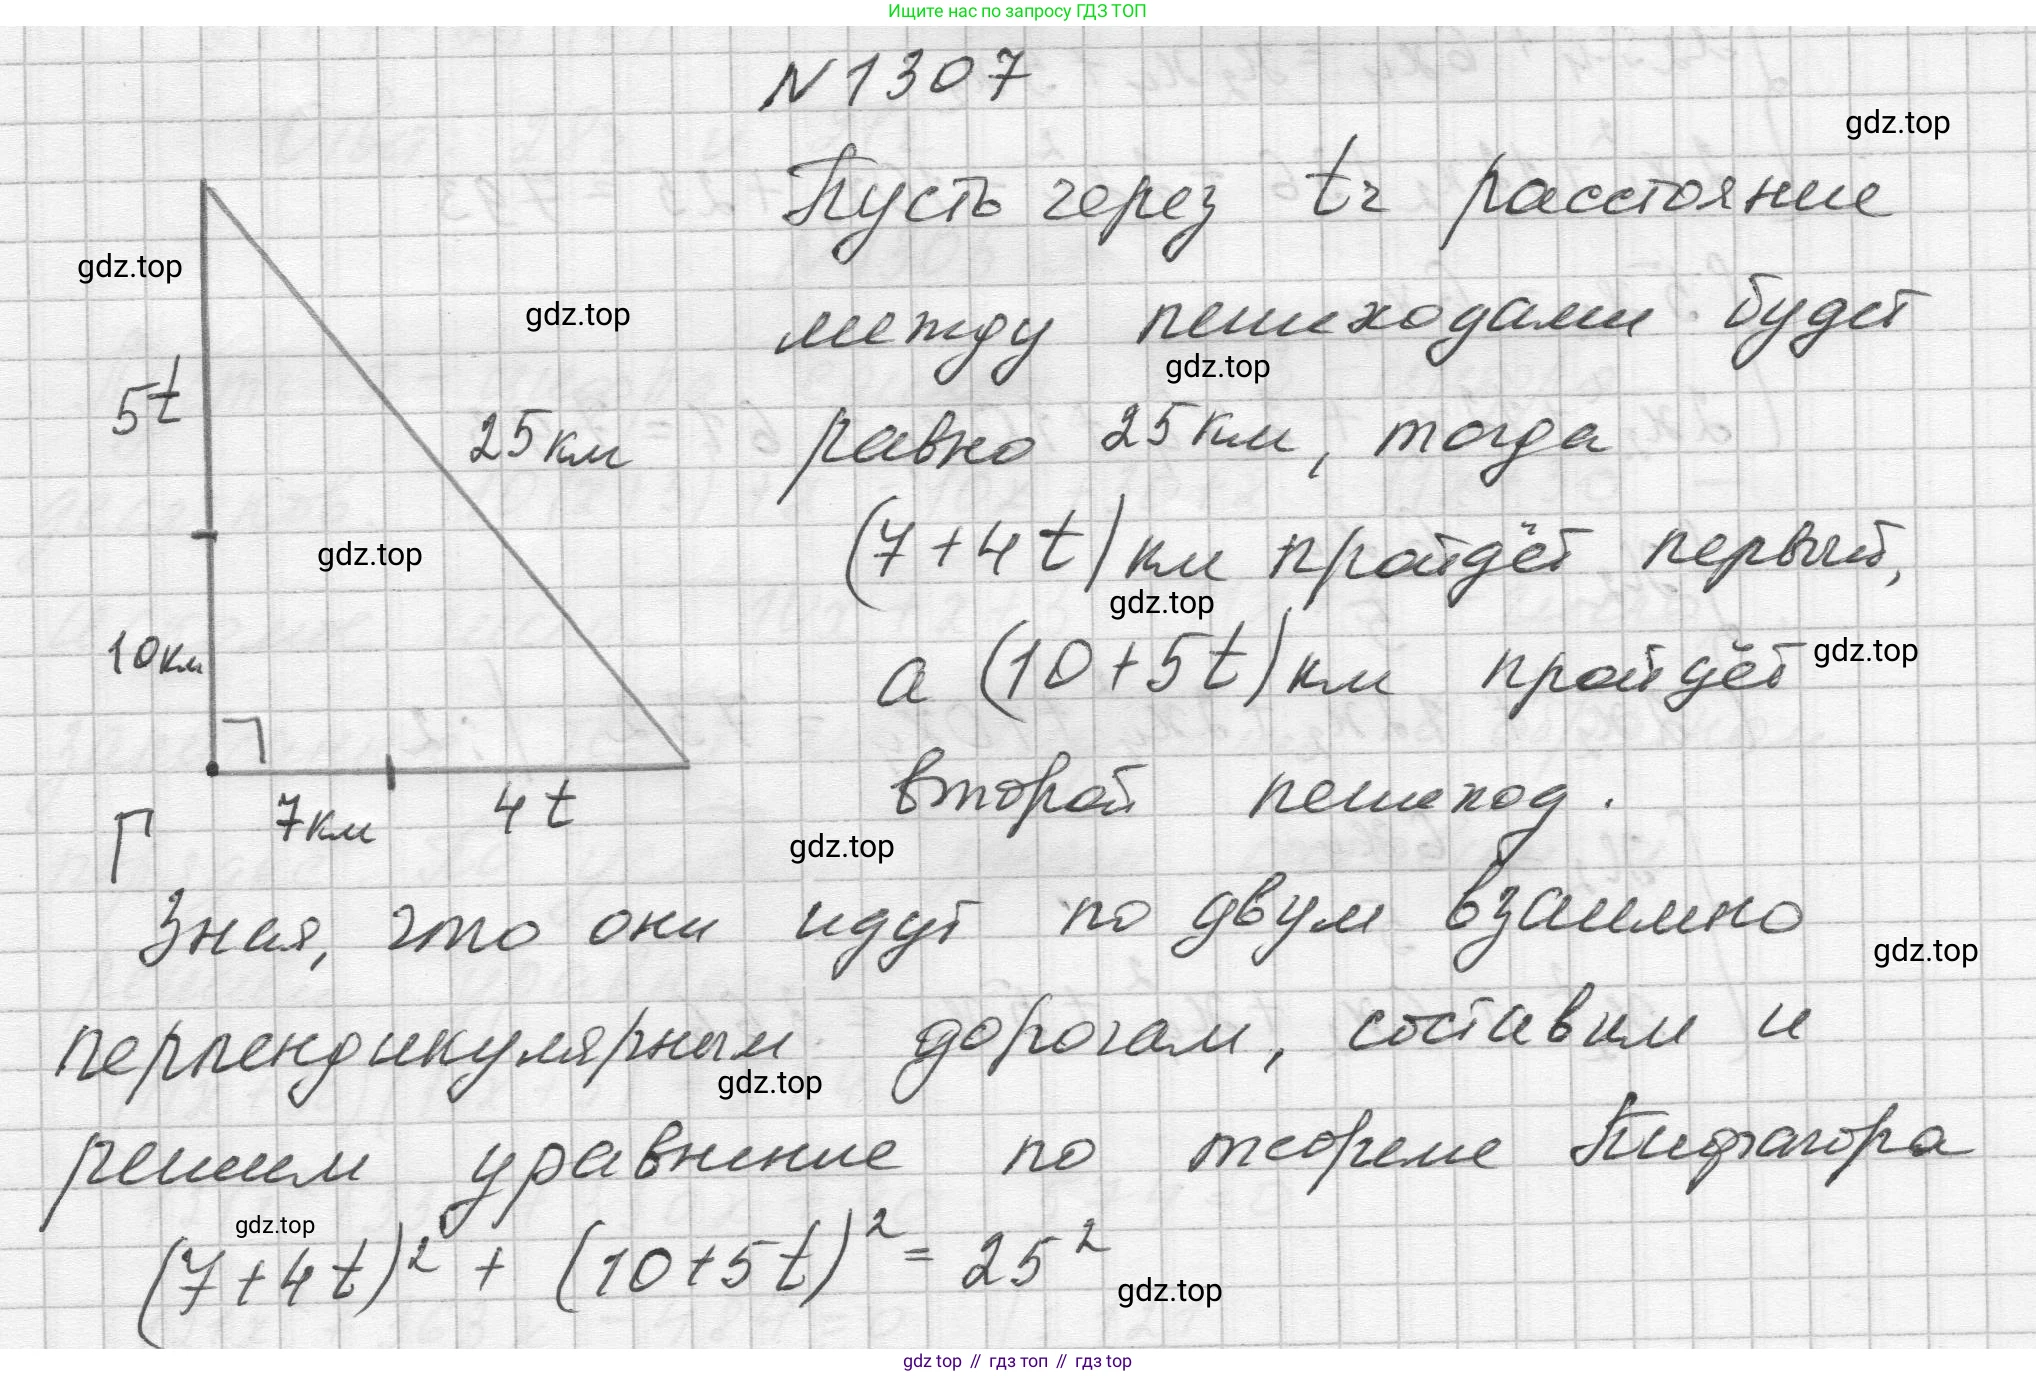 Ищите нас по запросу ГДЗ ТОП
N 1307
gdz.top
Пусть через tч расстояние
gdz.top
gdz.top
между пешеходами будет
gdz.top
5t
25км
равно 25км, тогда
gdz.top
(7+4t)км пройдёт первый,
gdz.top
10км
а (10+5t)км пройдёт
gdz.top
7км 4t
второй пешеход.
gdz.top
Зная, что они идут по двум взаимно
gdz.top
перпендикулярным дорогам, составим и
gdz.top
решим уравнение по теореме Пифагора
gdz.top
(7+4t)² + (10+5t)² = 25²
gdz.top
gdz top // гдз топ // гдз top